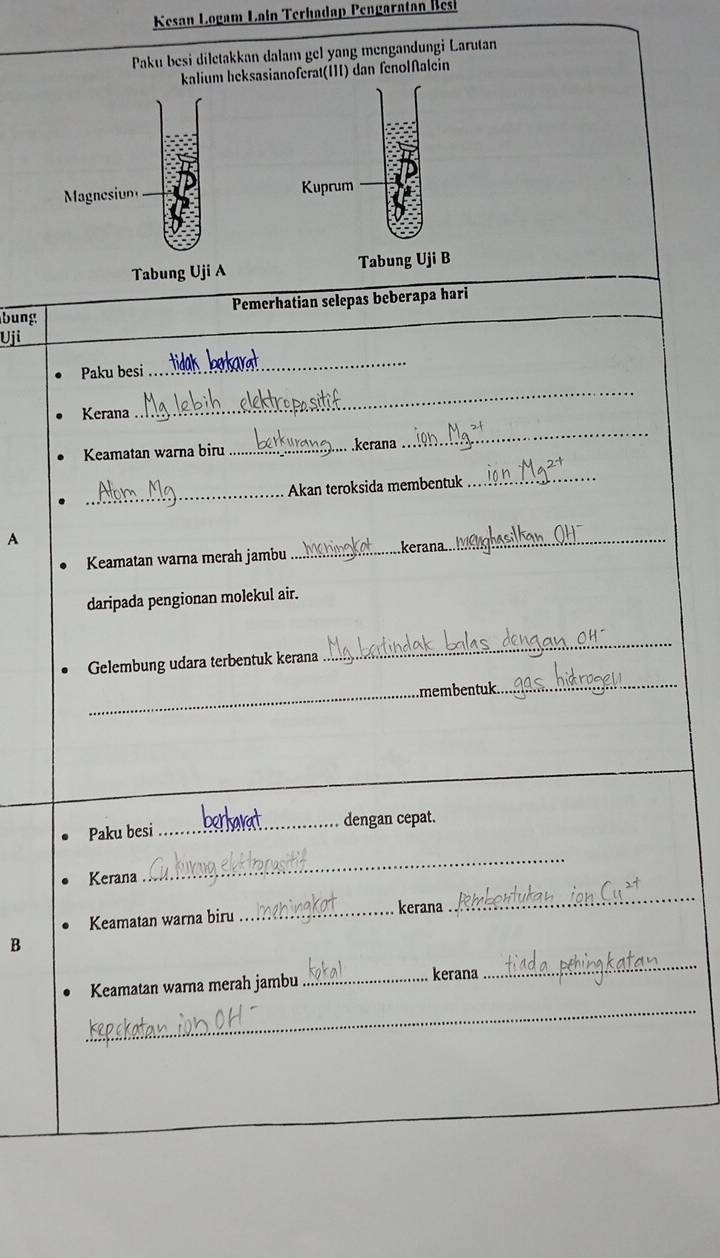 Kesan Logam Lain Terhadap Pengaratan Besi
Paku besi diletakkan dalam gel yang mengandungi Larutan
kalium heksasianoferat(III) dan fenolftalein
Magnesium
Kuprum
Tabung Uji A
Tabung Uji B
bung
Uji
Pemerhatian selepas beberapa hari
A
• Paku besi tidak berkarat
• Kerana Mg lebih elektropositif
• Keamatan warna biru berkurang kerana ion Mg²⁺
• Atom Mg Akan teroksida membentuk ion Mg²⁺
• Keamatan warna merah jambu meningkat kerana menghasilkan OH⁻
daripada pengionan molekul air.
• Gelembung udara terbentuk kerana Mg bertindak balas dengan OH⁻
membentuk gas hidrogen
B
• Paku besi berkarat dengan cepat.
• Kerana Cu kurang elektropositif
• Keamatan warna biru meningkat kerana Pembentukan ion Cu²⁺
• Keamatan warna merah jambu kekal kerana tiada peningkatan
kepekatan ion OH⁻